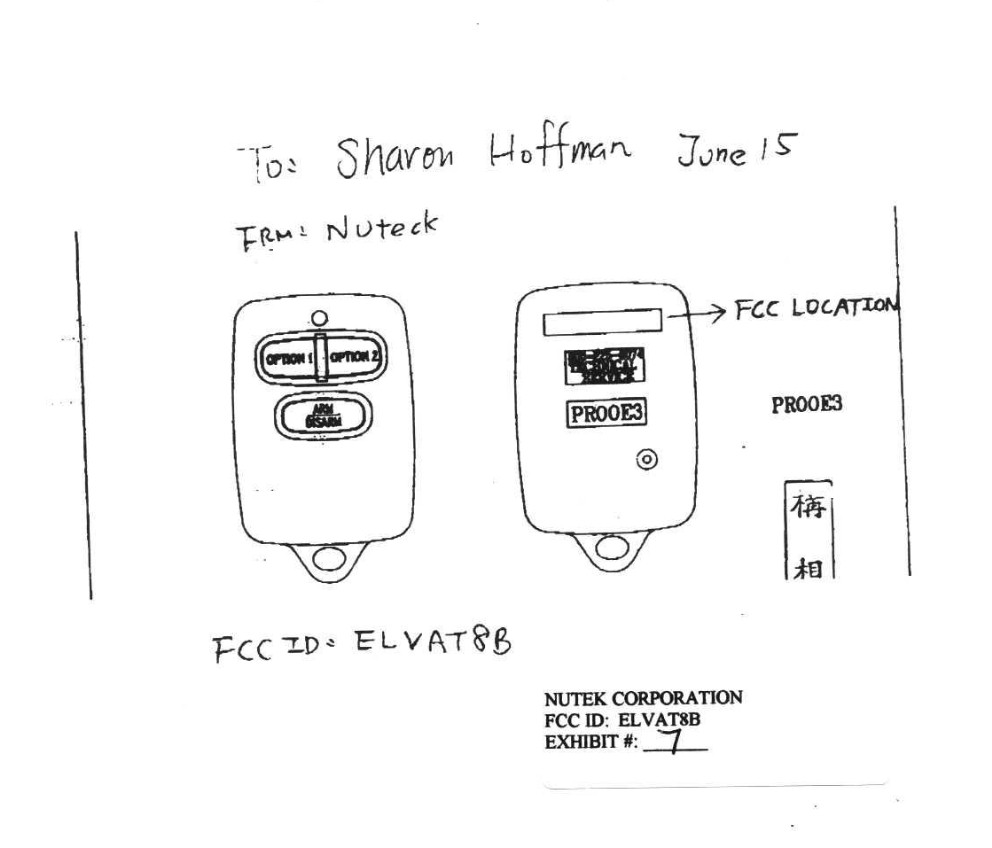 To: Sharon Hoffman June 15
FRM: Nuteck
FCC LOCATION
OPTION 1 OPTION 2
ARM
DISARM
SERVICE
PR00E3
PR00E3
相
FCC ID: ELVAT8B
NUTEK CORPORATION
FCC ID: ELVAT8B
EXHIBIT #: 7